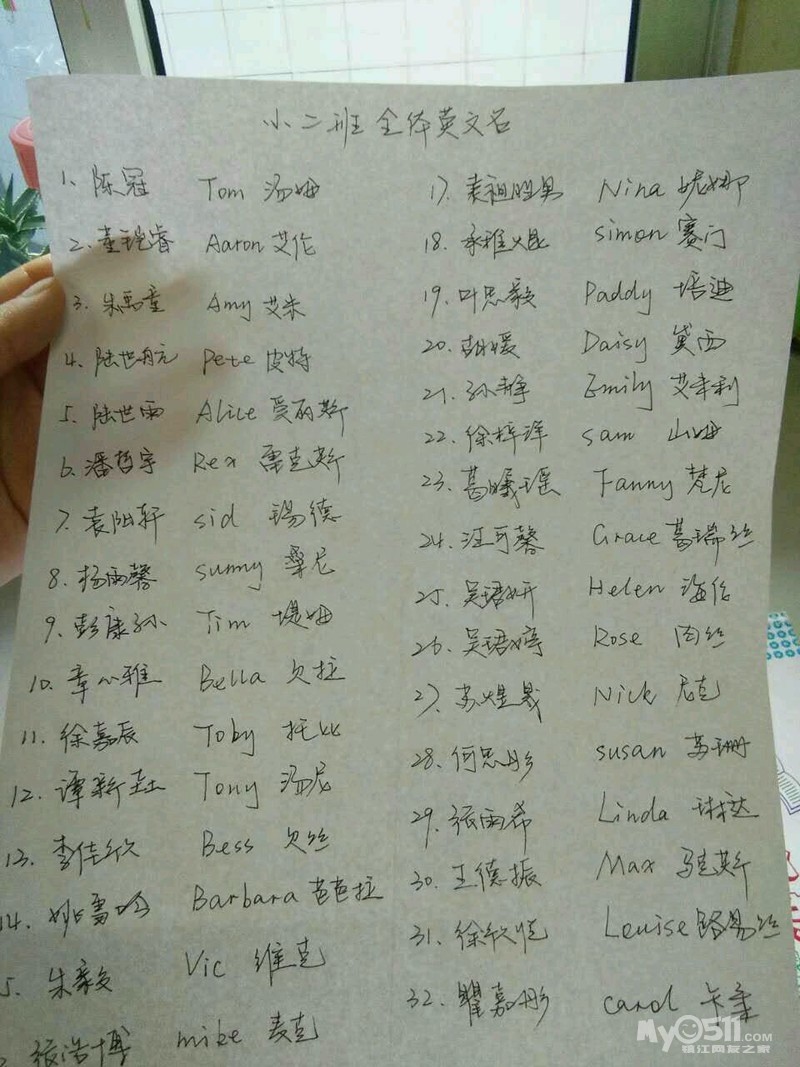 小二班全体英文名
1、陈冠 Tom 汤姆
2、董锐睿 Aaron 艾伦
3、朱禹童 Amy 艾米
4、陆世航 Pete 皮特
5、陆世雨 Alice 爱丽斯
6、潘哲宇 Rex 雷克斯
7、袁阳轩 sid 锡德
8、杨雨馨 sunny 桑尼
9、彭康孙 Tim 堤姆
10、章心雅 Bella 贝拉
11、徐嘉辰 Toby 托比
12、谭新 Tony 汤尼
13、李佳欣 Bess 贝丝
14、姚雪 Barbara 芭芭拉
5、朱毅 Vic 维克
张浩博 mike 麦克
17、 Nina 妮娜
18、 simon 赛门
19、叶思毅 Paddy 培迪
20、胡媛 Daisy 黛西
21、孙静 Emily 艾米利
22、徐梓洋 sam 山姆
23、葛曦瑶 Fanny 梵尼
24、汪可馨 Grace 葛瑞丝
25、吴珺妍 Helen 海伦
26、吴珺婷 Rose 肉丝
27、苏煜晟 Nick 尼克
28、何思彤 susan 苏珊
29、张雨希 Linda 琳达
30、王德振 Max 马克斯
31、徐欣恺 Leuise 路易丝
32、瞿嘉彤 carol 卡柔
My0511.COM
镇江网友之家